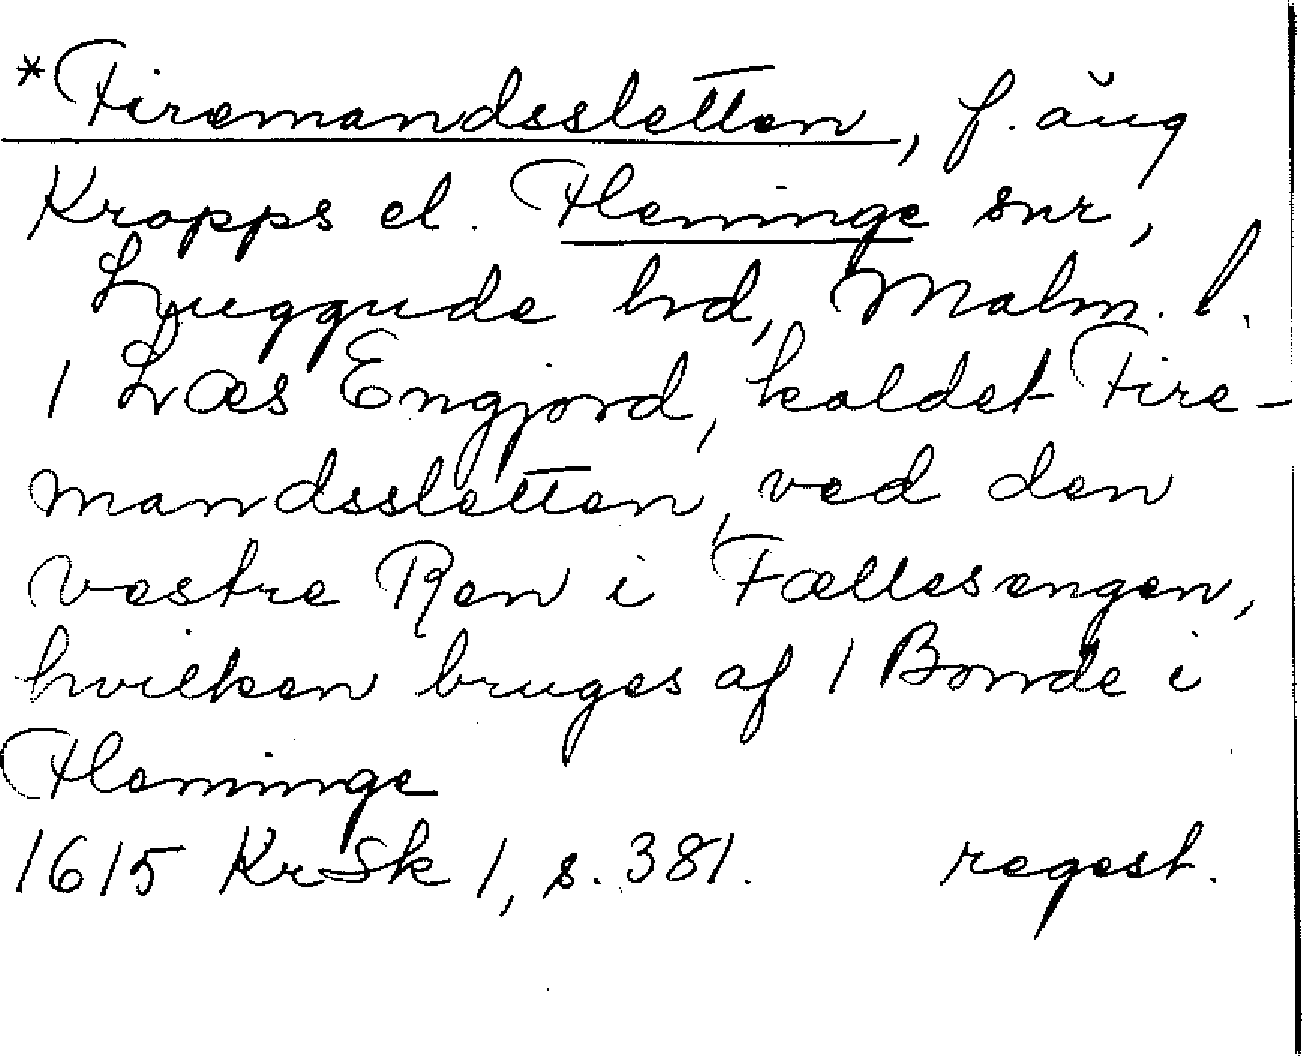 *Firemandssletten, f. äng
Kropps el. Fleninge snr,
Luggude hd, Malm. l.
1 Læs Engjord, kaldet Fire-
mandssletten, ved den
vestre Ren i Fællesengen,
hvilken bruges af 1 Bonde i
Fleninge
1615 KrSk 1, s. 381. regest.